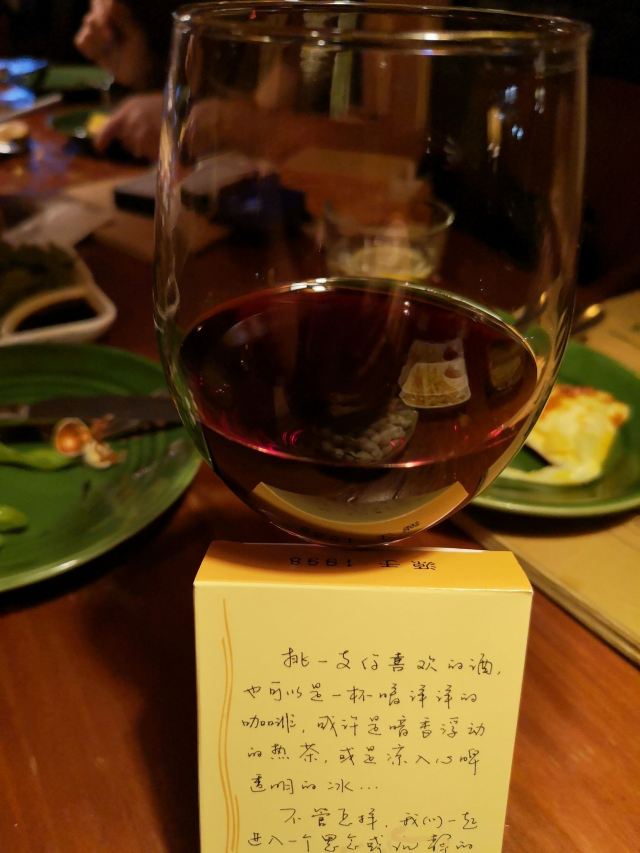 源于 1998
挑一支你喜欢的酒,
也可以是一杯暖洋洋的
咖啡,或许是暗香浮动
的热茶,或是凉入心脾
透明的冰…
不管怎样,我们一起
进入一个思念或沉静的